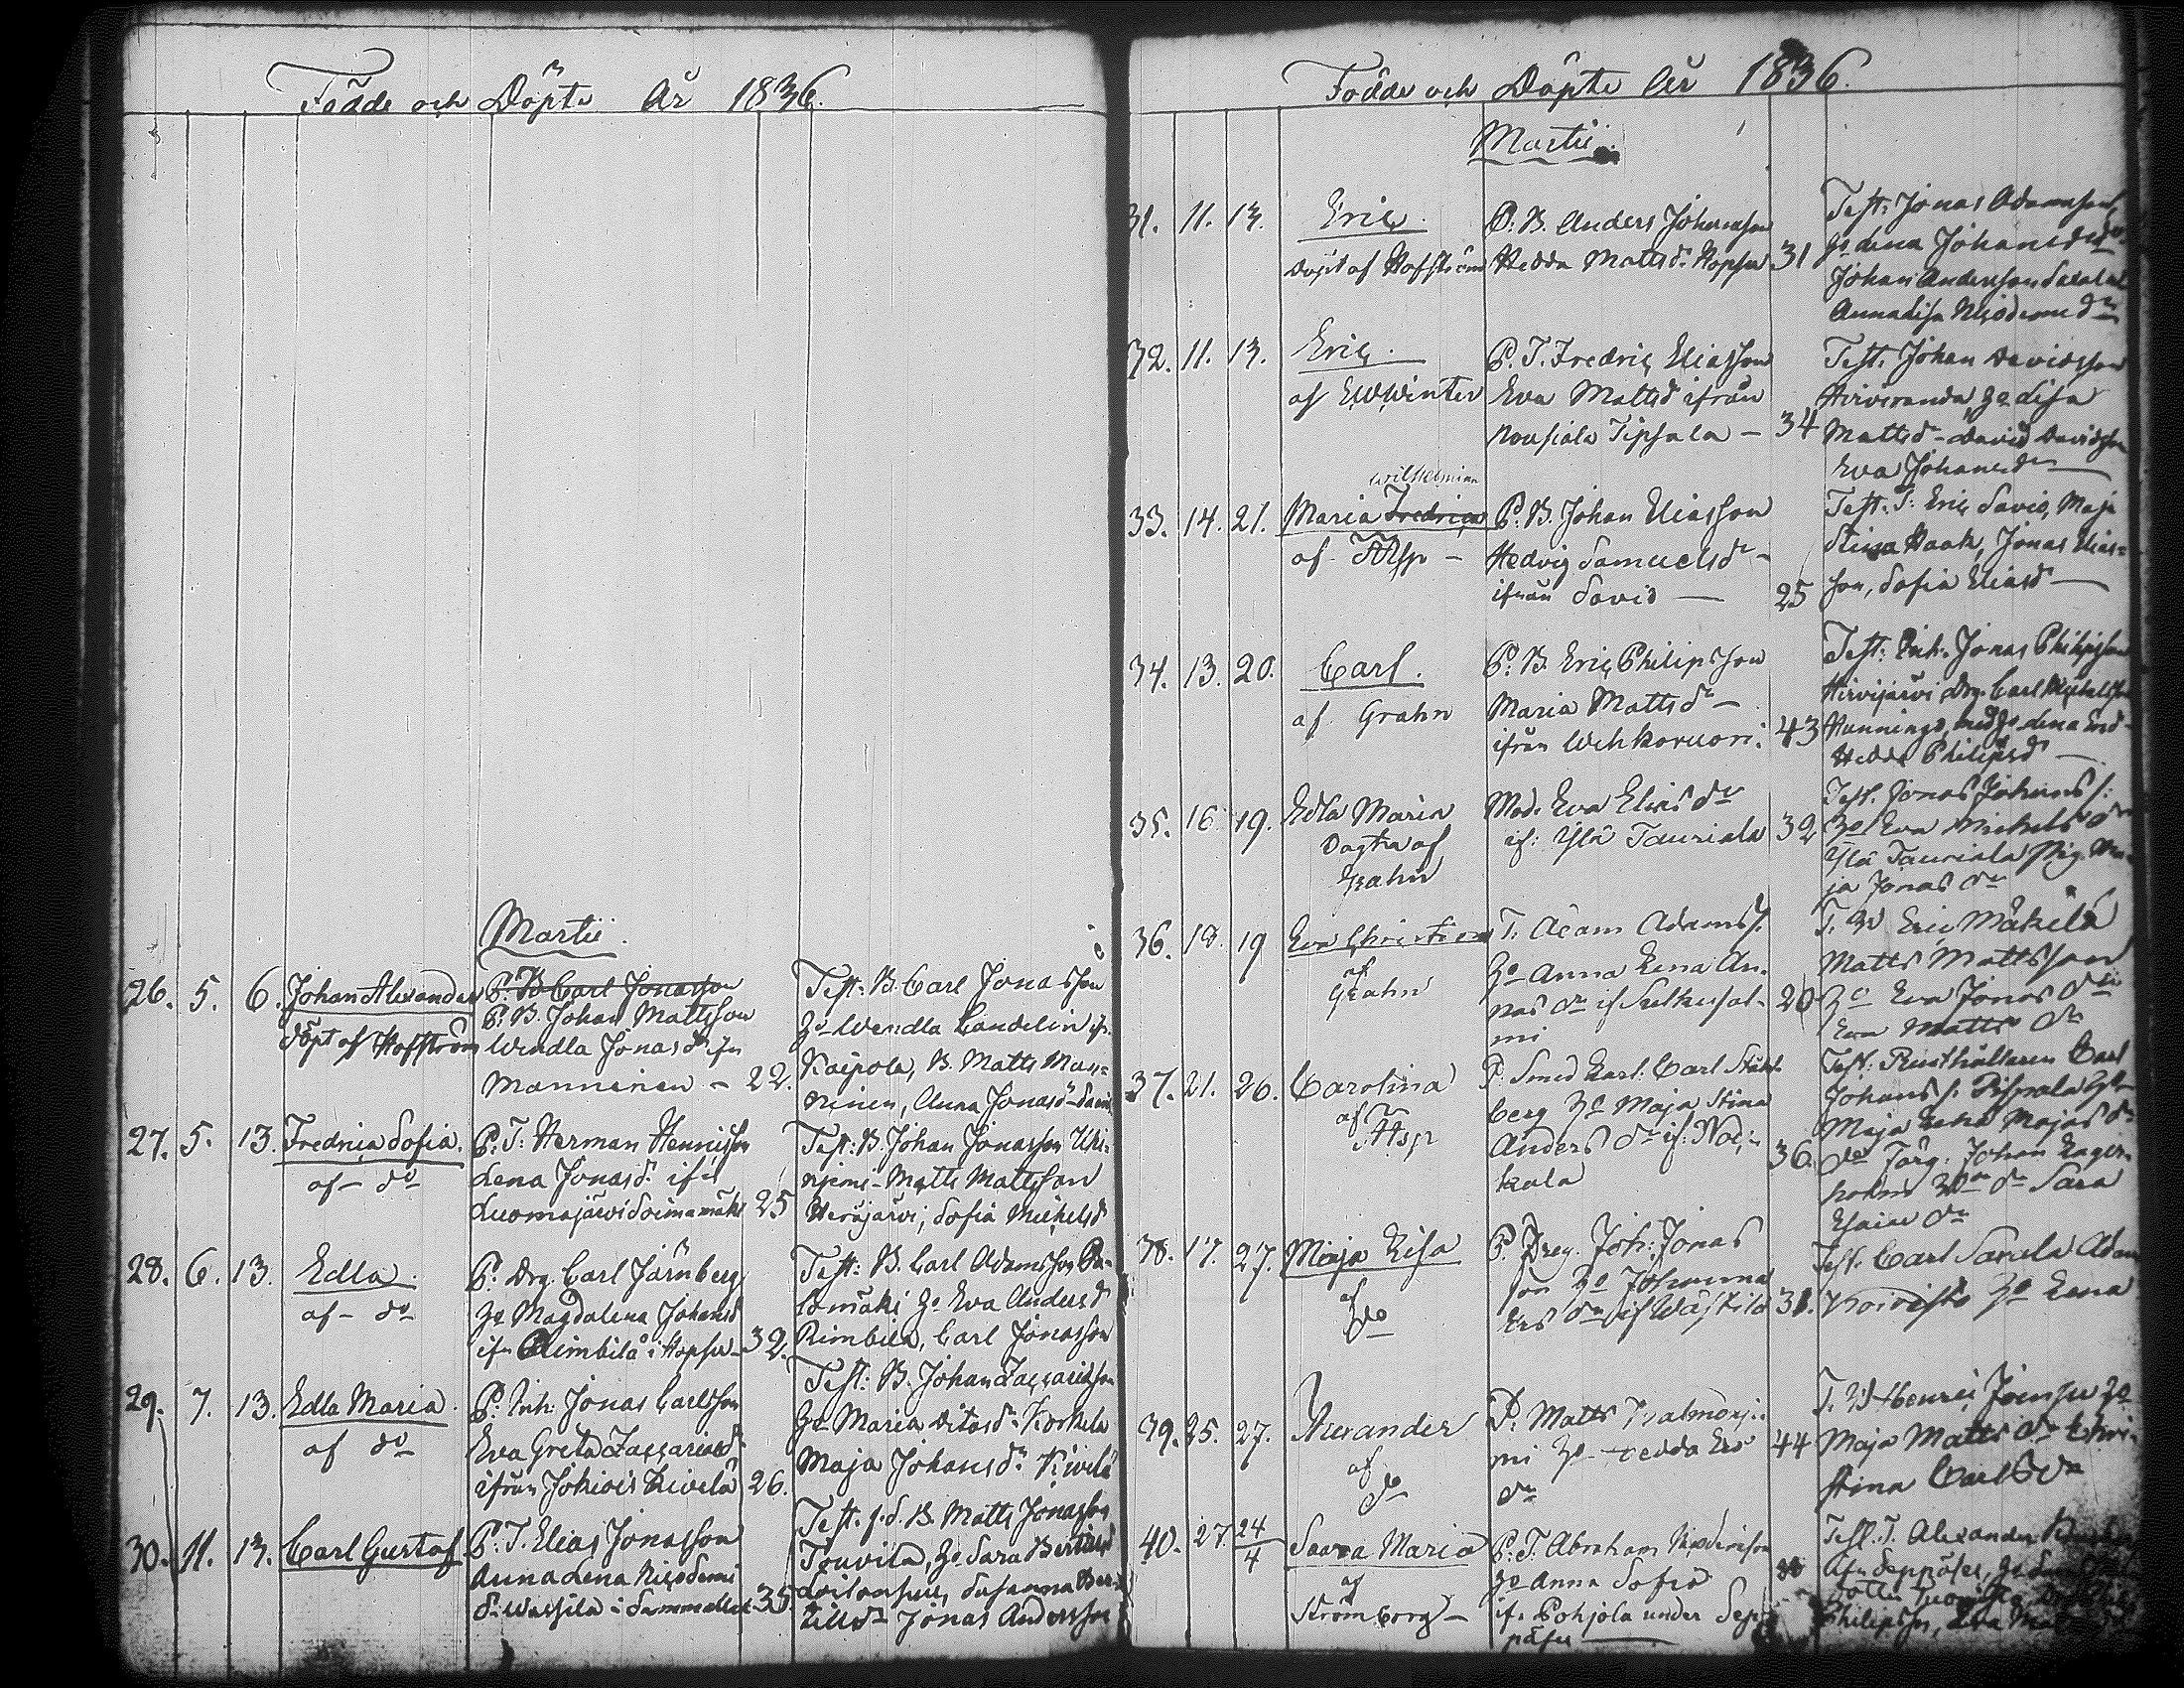 Födde och Döpte År 1836.
Martii.
26. 5. 6. Johan Alexander
döpt af Hofström
P: B Carl Jonasson
P: B. Johan Mattsson
Wendla Jonasdr ifn
Manninen - 22.
Test: B. Carl Jonasson
Ho Wendla Candelin ifr.
Kaipola, B. Matts Man=
ninen, Anna Jonasd
27. 5. 13. Fredrica Sofia.
af do
P: T: Herman Henricsson
Lena Jonasd. ifrå
Luomajärvi Soinamäki 25
Test: B. Johan Jonasson
Matts Mattsson
Heräjärvi, Sofia Michelsd
28. 6. 13. Edla.
af do
P. Drg. Carl Järnberg
Ho Magdalena Johansd
ifn Rimbilä i Hopsu 32.
Test: B. Carl Adamsson
Ho Eva Andersd
Rimbilä, Carl Jonasson
29. 7. 13. Edla Maria.
af do
P. Inh: Jonas Carlsson
Eva Greta Zaccariasd.
ifrån Jokiois Kivelä 26.
Test: B. Johan Zaccarisson
Ho Maria Vitasdr Korkela
Maja Johansdr Kivelä
30. 11. 13. Carl Gustaf
P. T. Elias Jonasson
Anna Lena Nicodemi
dr Wassila i Sammallus 35.
Test. s.d. B. Matts Jonasson
Touvila, Ho Sara Bertilsd
Susanna Ber=
tillsdr Jonas Andersson
Födde och Döpte År 1836.
Martii.
31. 11. 13. Eric.
döpt af Hofström
P: B. Anders Johansson
Hedda Mattsdr Hopsu 31
Test: Jonas Adamsson,
Ho Lena Johansdr
Johan Andersson
Annalisa Nicodemidr
32. 11. 13. Eric.
af EWWinter
P. T. Fredric Eliasson
Eva Mattsd ifrån
Nousiala Tipsala - 34
Test: Johan Davidsson
Hirviranda, Ho Lisa
Mattsd - David Davidsson
Eva Johansdr
33. 14. 21. Maria Fredrica
Wilhelmina
af
P: B. Johan Eliasson
Hedvig Samuelsdr
ifrån Savio 25
Test. T: Eric Savio, Maja
Stina Haak, Jonas Elias=
son, Sofia Eliasd
34. 13. 20. Carl.
af Grahn
P: B. Eric Philipsson
Maria Mattsdr
ifrån Wehkavuori. 43
Test: Inh. Jonas Philipsson
Hirvijärvi, Drg. Carl Michelsson
Hunnings, med Ho Lena Ersd
Hedda Philipsd
35. 16 19. Edla Maria
Dogtra af
Grahn
Mod. Eva Eliasdr
if: Ylä Tauriala 32
Test. Jonas Johans s:
Ho Eva Michels dr
Ylä Tauriala Pig. Ma-
ja Jonas dr
36. 18. 19 Eva Christina
af
Grahn
T. Adam Adams s.
Ho Anna Lena An.
nas dr if Selkusal-
mi 20
T. B Eric Mäkelä
Matts Mattsson
Ho Eva Jonas dr
Eva Matts dr
37. 21. 26. Carolina
af
P: Smed Karl: Carl Ståhl-
berg Ho Maja Stina
Anders dr if: Noc-
kala 36.
Test: Rusthållaren Carl
Johans s. Pispala Ho
Maja Lena Majas dr
do Färg. Johan Lager-
holm Sara
Esaiae dr
38. 17. 27. Maja Lisa
af
do
P. Dreg. Joh: Jonas
son Ho Johanna
Ers dr if Wästilä 31.
Test. Carl Sarala Adam
Koivisto Ho Lena
39. 25. 27. Alexander
af
do
P: Matts
mi Ho Hedda Ers
dr 44
T. B Henric Ho
Maja Matts dr Chri-
stina Carls dr
40. 27. 24/4 Saara Maria
af
Strömborg
P. T. Abraham Nicodemisson
Ho Anna Sofia
if: Pohjola under Sep-
päsu
Test. T. Alexander
Philipsson, Eva